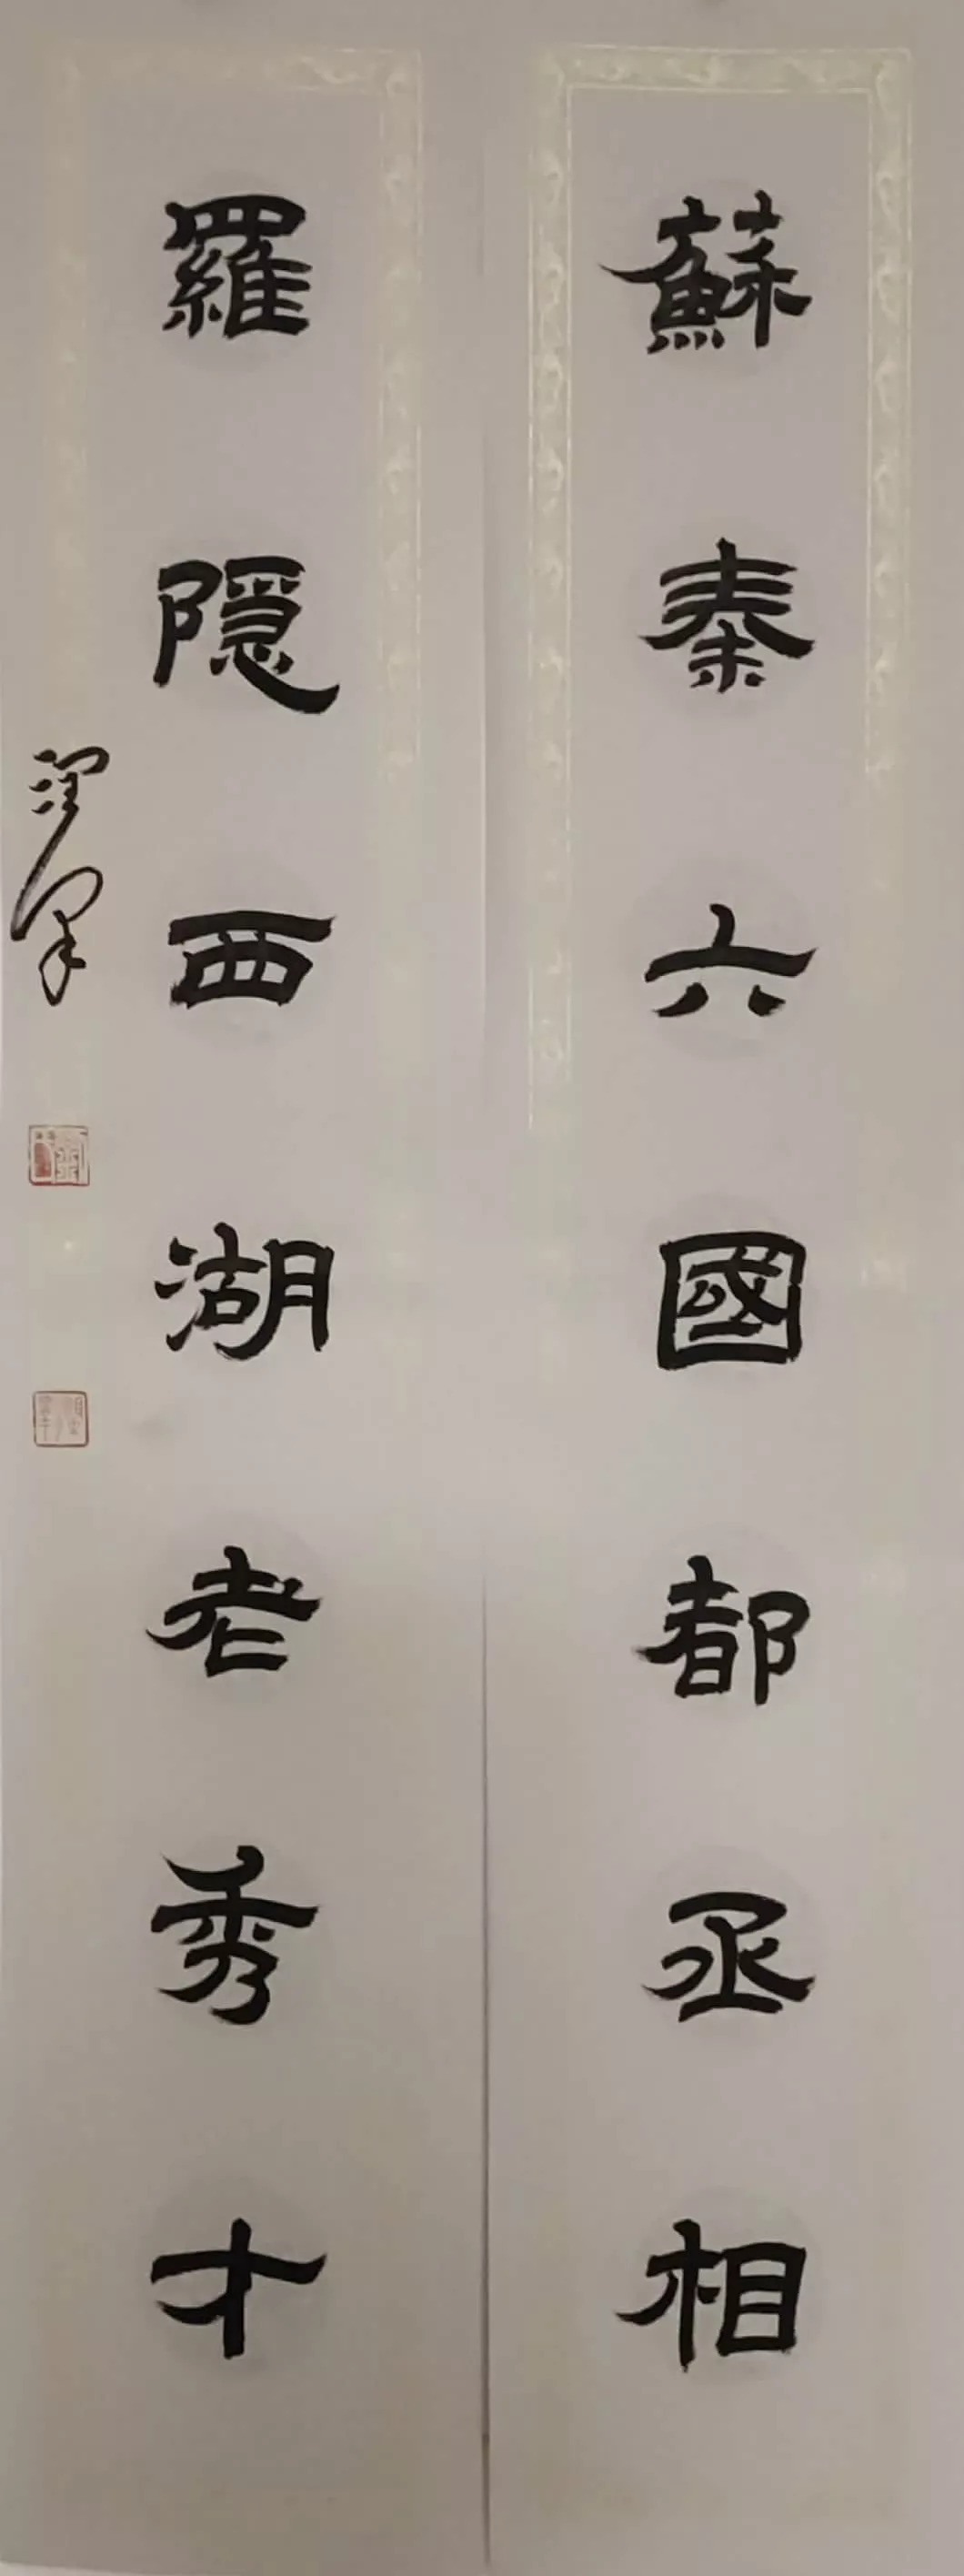 蘇秦六國都丞相
羅隱西湖老秀才